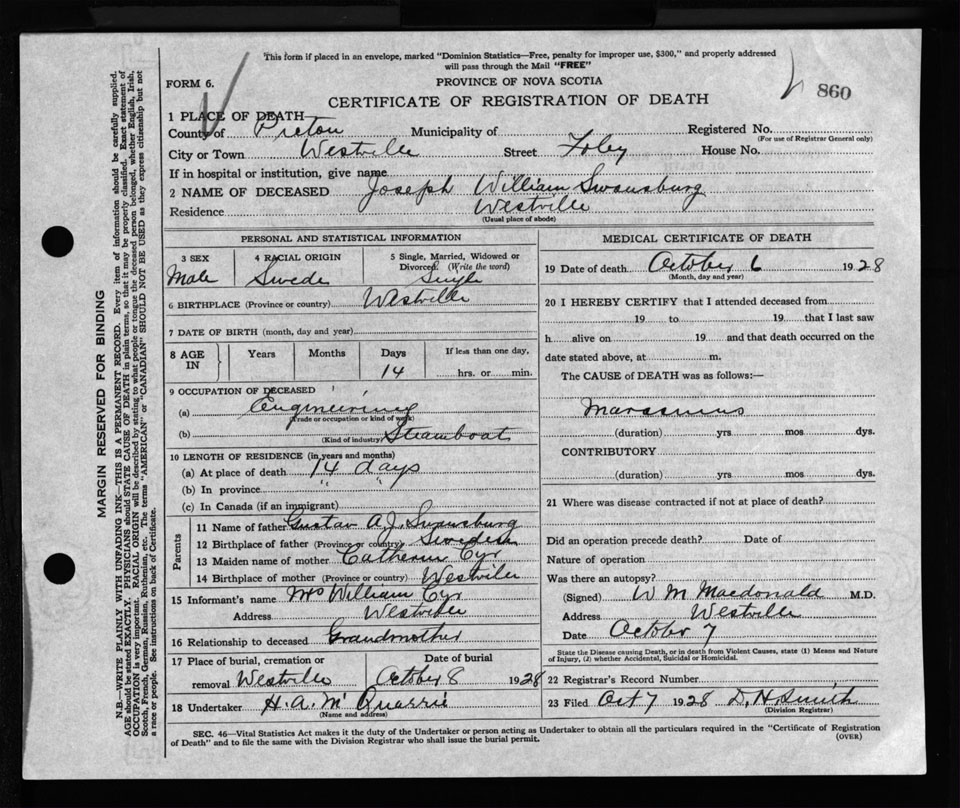 This form if placed in an envelope, marked "Dominion Statistics—Free, penalty for improper use, $300," and properly addressed
will pass through the Mail "FREE"
FORM 6.
PROVINCE OF NOVA SCOTIA
860
CERTIFICATE OF REGISTRATION OF DEATH
1 PLACE OF DEATH
County of Pictou Municipality of Registered No.
(For use of Registrar General only)
City or Town Westville Street Foley House No.
If in hospital or institution, give name
2 NAME OF DECEASED Joseph William Swansburg
Residence Westville
(Usual place of abode)
PERSONAL AND STATISTICAL INFORMATION
3 SEX 4 RACIAL ORIGIN 5 Single, Married, Widowed or Divorced. (Write the word)
Male Swede Single
6 BIRTHPLACE (Province or country) Westville
7 DATE OF BIRTH (month, day and year)
8 AGE IN Years Months Days If less than one day,
14 hrs. or min.
9 OCCUPATION OF DECEASED
(a) Engineering
(Trade or occupation or kind of work)
(b) Steamboat
(Kind of industry)
10 LENGTH OF RESIDENCE (in years and months)
(a) At place of death 14 days
(b) In province " "
(c) In Canada (if an immigrant)
Parents
11 Name of father Gustav A.J. Swansburg
12 Birthplace of father (Province or country) Swedish
13 Maiden name of mother Catherin Cyr
14 Birthplace of mother (Province or country) Westville
15 Informant's name Mrs William Cyr
Address Westville
16 Relationship to deceased Grandmother
17 Place of burial, cremation or Date of burial
removal Westville October 8 1928
18 Undertaker H. A. McQuarrie
(Name and address)
MEDICAL CERTIFICATE OF DEATH
19 Date of death October 6 1928
(Month, day and year)
20 I HEREBY CERTIFY that I attended deceased from
19 to 19 that I last saw
h alive on 19 and that death occurred on the
date stated above, at m.
The CAUSE of DEATH was as follows:—
Marasmus
(duration) yrs mos dys.
CONTRIBUTORY
(duration) yrs mos dys.
21 Where was disease contracted if not at place of death?
Did an operation precede death? Date of
Nature of operation
Was there an autopsy?
(Signed) W M Macdonald M.D.
Address Westville
Date October 7
State the Disease causing Death, or in death from Violent Causes, state (1) Means and Nature
of Injury, (2) whether Accidental, Suicidal or Homicidal.
22 Registrar's Record Number
23 Filed Oct 7 1928 D. H. Smith
(Division Registrar)
SEC. 46—Vital Statistics Act makes it the duty of the Undertaker or person acting as Undertaker to obtain all the particulars required in the "Certificate of Registration
of Death" and to file the same with the Division Registrar who shall issue the burial permit.
(OVER)
MARGIN RESERVED FOR BINDING
N.B.—WRITE PLAINLY WITH UNFADING INK—THIS IS A PERMANENT RECORD. Every item of information should be carefully supplied.
AGE should be stated EXACTLY. PHYSICIANS should STATE CAUSE OF DEATH in plain terms, so that it may be properly classified. Exact statement of
OCCUPATION is very important. RACIAL ORIGIN will be described by stating to what people or tongue the deceased person belonged, whether English, Irish,
Scotch, French, German, Russian, Ruthenian, etc. The terms "AMERICAN" or "CANADIAN" SHOULD NOT BE USED as they express citizenship but not
a race or people. See instructions on back of Certificate.